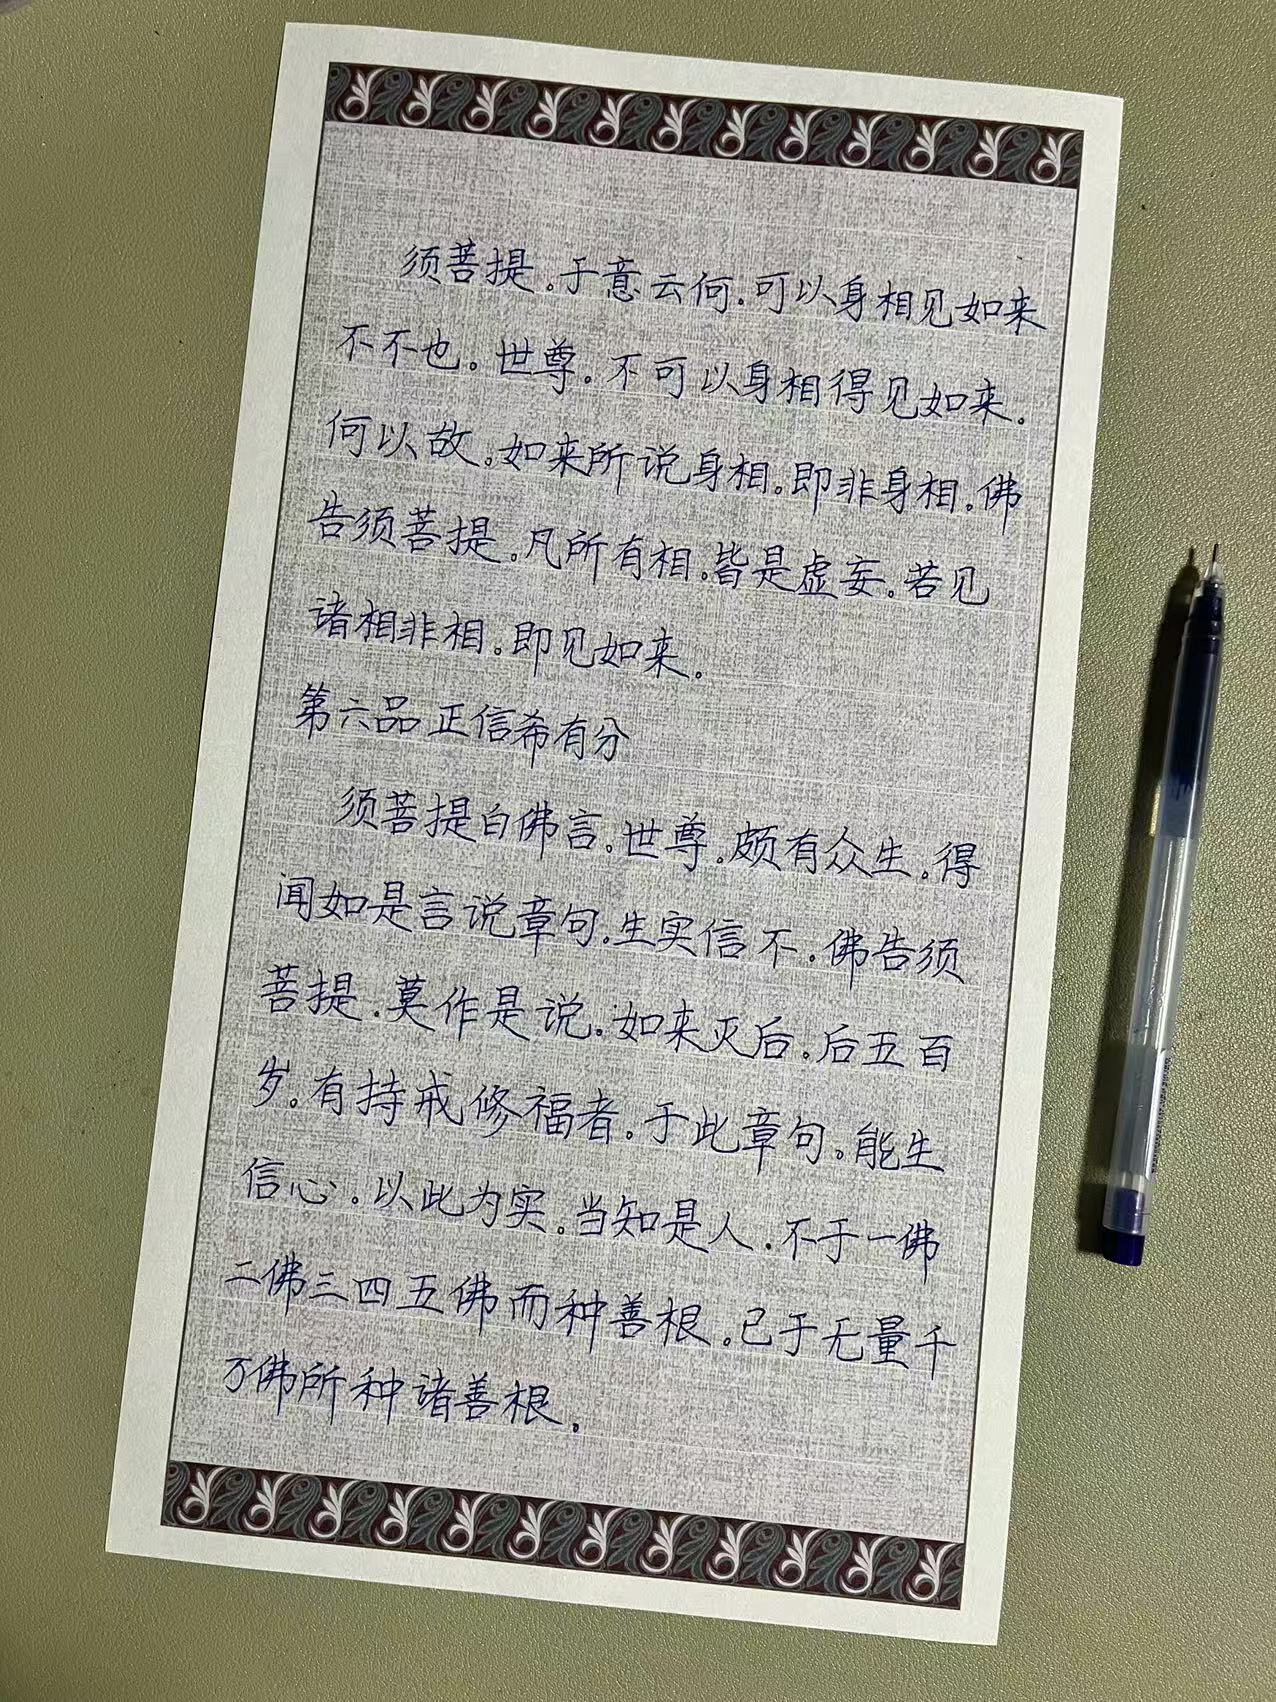 须菩提。于意云何。可以身相见如来
不不也。世尊。不可以身相得见如来。
何以故。如来所说身相。即非身相。佛
告须菩提。凡所有相。皆是虚妄。若见
诸相非相。即见如来。
第六品 正信希有分
须菩提白佛言。世尊。颇有众生。得
闻如是言说章句。生实信不。佛告须
菩提。莫作是说。如来灭后。后五百
岁。有持戒修福者。于此章句。能生
信心。以此为实。当知是人。不于一佛
二佛三四五佛而种善根。已于无量千
万佛所种诸善根。